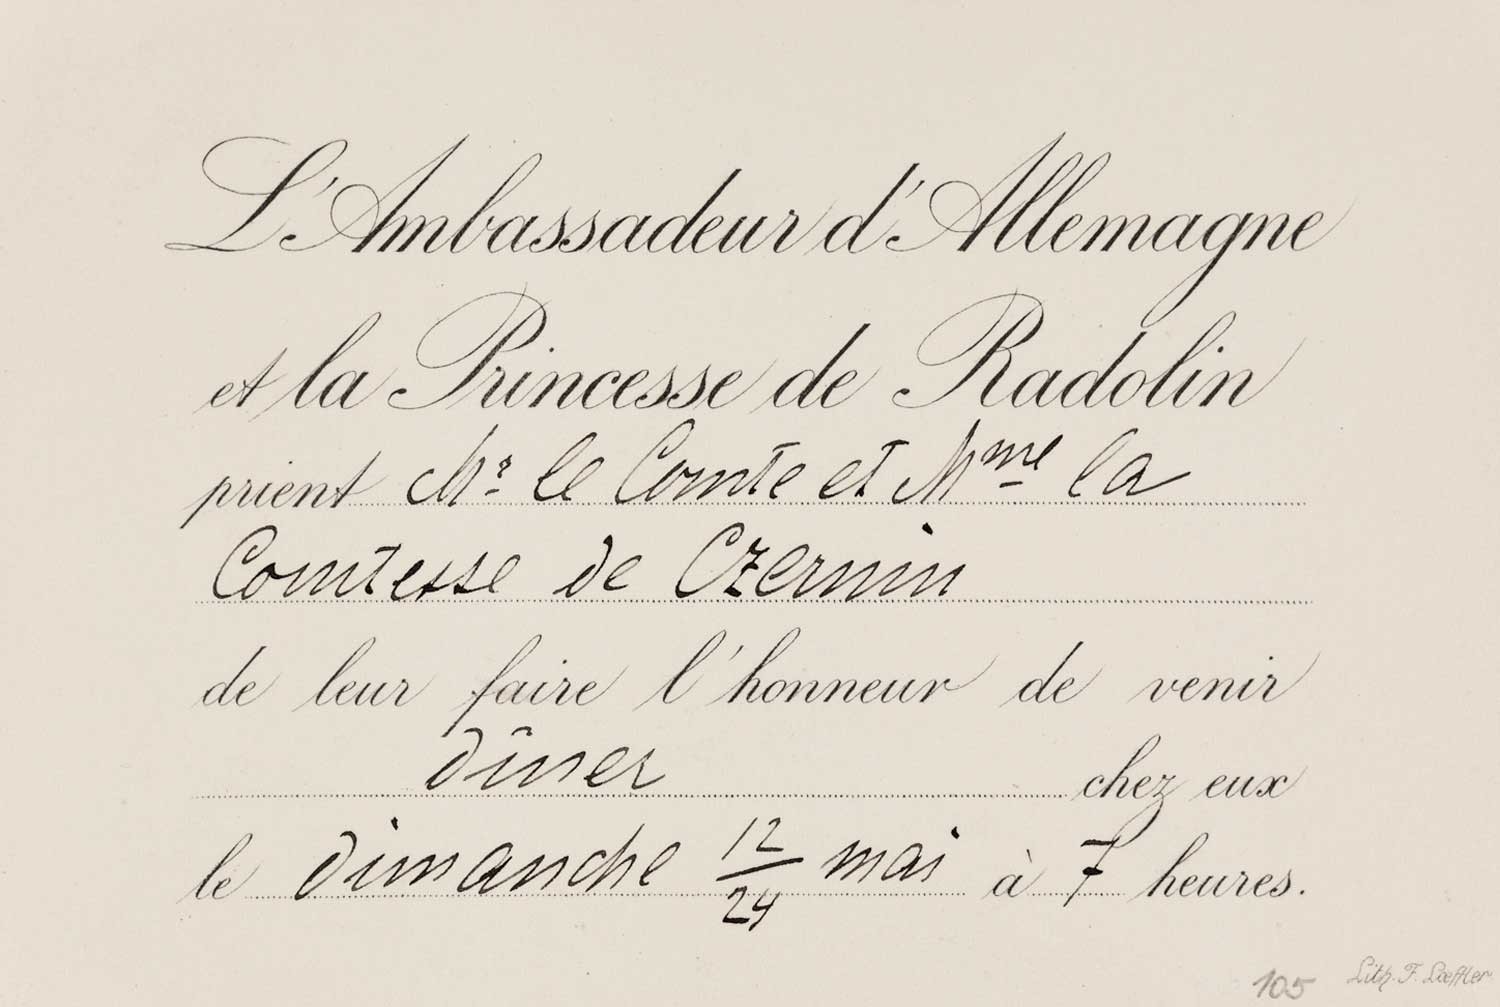 L'Ambassadeur d'Allemagne
et la Princesse de Radolin
prient Mr. le Comte et Mme la
Comtesse de Czernin
de leur faire l'honneur de venir
dîner chez eux
le dimanche 12/24 mai à 7 heures.
105 Lith. F. Lœffler